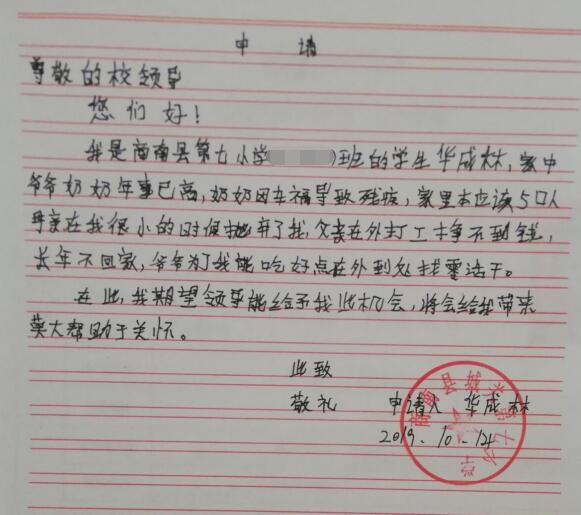 申请
尊敬的校领导
您们好！
我是商南县第九小学 班的学生华成林，家中
爷爷奶奶年事已高，奶奶因车祸导致残疾，家里本应该5口人
母亲在我很小的时候抛弃了我，父亲在外打工挣不到钱，
长年不回家，爷爷为了我能吃好点在外到处找零活干。
在此，我期望领导能给予我此机会，将会给我带来
莫大帮助于关怀。
此致
敬礼 申请人 华成林
2019.10.14
商南县城关第九小学